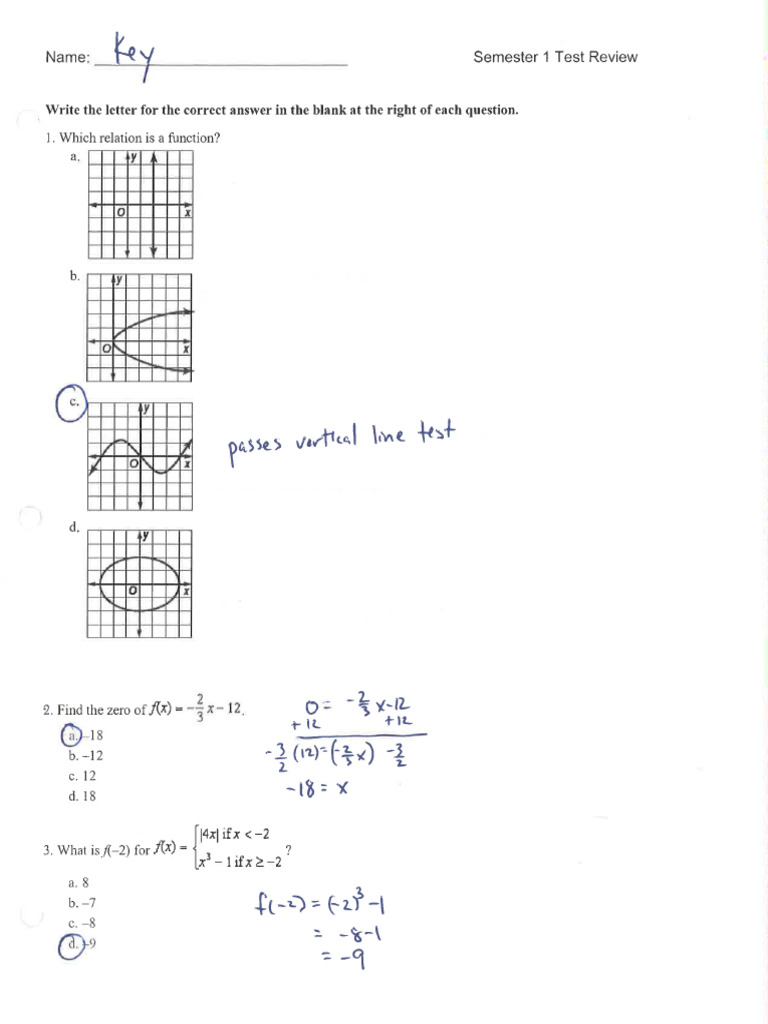 Name: Key Semester 1 Test Review
Write the letter for the correct answer in the blank at the right of each question.
1. Which relation is a function?
a.
y
O x
b.
y
O x
c.
y
O x
passes vertical line test
d.
y
O x
2. Find the zero of f(x) = -2/3 x - 12.
a. -18
b. -12
c. 12
d. 18
0 = -2/3 x - 12
+12 +12
-3/2 (12) = (-2/3 x) -3/2
-18 = x
3. What is f(-2) for f(x) = { |4x| if x < -2
x³ - 1 if x ≥ -2 ?
a. 8
b. -7
c. -8
d. -9
f(-2) = (-2)³ - 1
= -8 - 1
= -9